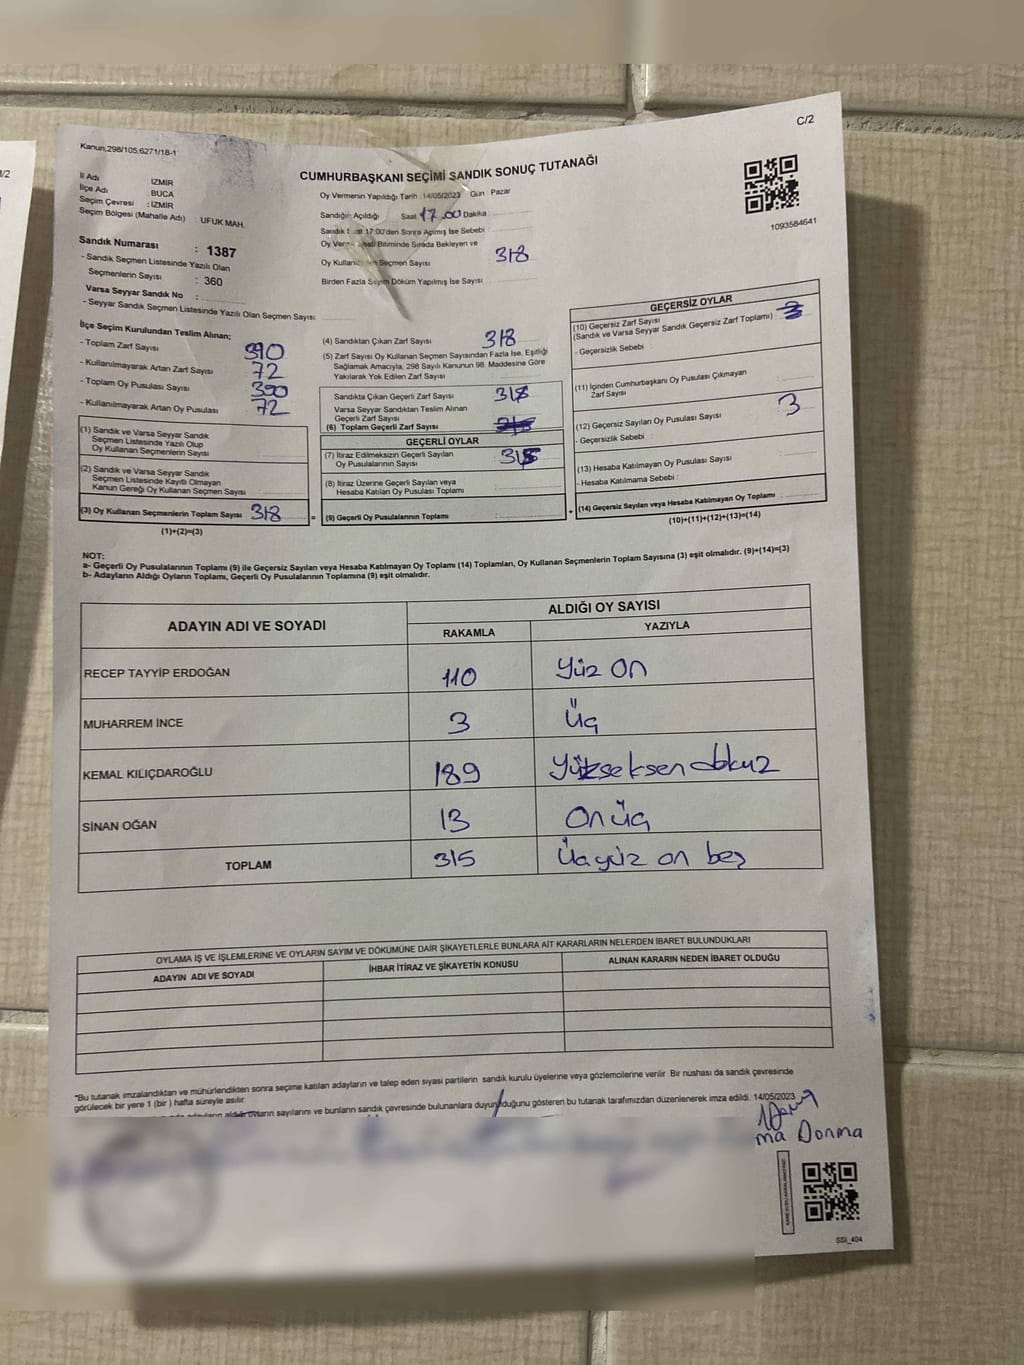 C/2
Kanun;298/105,6271/18-1
CUMHURBAŞKANI SEÇİMİ SANDIK SONUÇ TUTANAĞI
İl Adı : İZMİR
İlçe Adı : BUCA
Seçim Çevresi : İZMİR
Seçim Bölgesi (Mahalle Adı) : UFUK MAH.
Sandık Numarası : 1387
- Sandık Seçmen Listesinde Yazılı Olan
Seçmenlerin Sayısı : 360
Varsa Seyyar Sandık No :
- Seyyar Sandık Seçmen Listesinde Yazılı Olan Seçmen Sayısı:
Oy Vermenin Yapıldığı Tarih 14/05/2023 Gün Pazar
Sandığın Açıldığı Saat 17.00 Dakika
17:00'den Sonra Açılmış İse Sebebi
Bitiminde Sırada Bekleyen ve
Oy Seçmen Sayısı 318
Birden Fazla Sayım Döküm Yapılmış İse Sayısı
1093584641
İlçe Seçim Kurulundan Teslim Alınan;
- Toplam Zarf Sayısı 390
- Kullanılmayarak Artan Zarf Sayısı 72
- Toplam Oy Pusulası Sayısı 390
- Kullanılmayarak Artan Oy Pusulası 72
(1) Sandık ve Varsa Seyyar Sandık
Seçmen Listesinde Yazılı Olup
Oy Kullanan Seçmenlerin Sayısı
(2) Sandık ve Varsa Seyyar Sandık
Seçmen Listesinde Kayıtlı Olmayan
Kanun Gereği Oy Kullanan Seçmen Sayısı
(3) Oy Kullanan Seçmenlerin Toplam Sayısı 318
(1)+(2)=(3)
(4) Sandıktan Çıkan Zarf Sayısı 318
(5) Zarf Sayısı Oy Kullanan Seçmen Sayısından Fazla İse, Eşitliği
Sağlamak Amacıyla, 298 Sayılı Kanunun 98. Maddesine Göre
Yakılarak Yok Edilen Zarf Sayısı
Sandıkta Çıkan Geçerli Zarf Sayısı 318
Varsa Seyyar Sandıktan Teslim Alınan
Geçerli Zarf Sayısı
(6) Toplam Geçerli Zarf Sayısı
GEÇERLİ OYLAR
(7) İtiraz Edilmeksizin Geçerli Sayılan
Oy Pusulalarının Sayısı 315
(8) İtiraz Üzerine Geçerli Sayılan veya
Hesaba Katılan Oy Pusulası Toplamı
(9) Geçerli Oy Pusulalarının Toplamı
GEÇERSİZ OYLAR
(10) Geçersiz Zarf Sayısı
(Sandık ve Varsa Seyyar Sandık Geçersiz Zarf Toplamı) :
- Geçersizlik Sebebi :
(11) İçinden Cumhurbaşkanı Oy Pusulası Çıkmayan
Zarf Sayısı
(12) Geçersiz Sayılan Oy Pusulası Sayısı 3
- Geçersizlik Sebebi :
(13) Hesaba Katılmayan Oy Pusulası Sayısı
- Hesaba Katılmama Sebebi :
(14) Geçersiz Sayılan veya Hesaba Katılmayan Oy Toplamı
(10)+(11)+(12)+(13)=(14)
NOT:
a- Geçerli Oy Pusulalarının Toplamı (9) ile Geçersiz Sayılan veya Hesaba Katılmayan Oy Toplamı (14) Toplamları, Oy Kullanan Seçmenlerin Toplam Sayısına (3) eşit olmalıdır. (9)+(14)=(3)
b- Adayların Aldığı Oyların Toplamı, Geçerli Oy Pusulalarının Toplamına (9) eşit olmalıdır.
ADAYIN ADI VE SOYADI ALDIĞI OY SAYISI
RAKAMLA YAZIYLA
RECEP TAYYİP ERDOĞAN 110 Yüz on
MUHARREM İNCE 3 Üç
KEMAL KILIÇDAROĞLU 189 Yükseksen dokuz
SİNAN OĞAN 13 On üç
TOPLAM 315 Üçyüz on beş
OYLAMA İŞ VE İŞLEMLERİNE VE OYLARIN SAYIM VE DÖKÜMÜNE DAİR ŞİKAYETLERLE BUNLARA AİT KARARLARIN NELERDEN İBARET BULUNDUKLARI
ADAYIN ADI VE SOYADI İHBAR İTİRAZ VE ŞİKAYETİN KONUSU ALINAN KARARIN NEDEN İBARET OLDUĞU
"Bu tutanak imzalandıktan ve mühürlendikten sonra seçime katılan adayların ve talep eden siyasi partilerin sandık kurulu üyelerine veya gözlemcilerine verilir. Bir nüshası da sandık çevresinde
görülecek bir yere 1 (bir) hafta süreyle asılır.
adayların aldığı oyların sayılarını ve bunların sandık çevresinde bulunanlara duyurulduğunu gösteren bu tutanak tarafımızdan düzenlenerek imza edildi. 14/05/2023
ma Donma
SSI_404